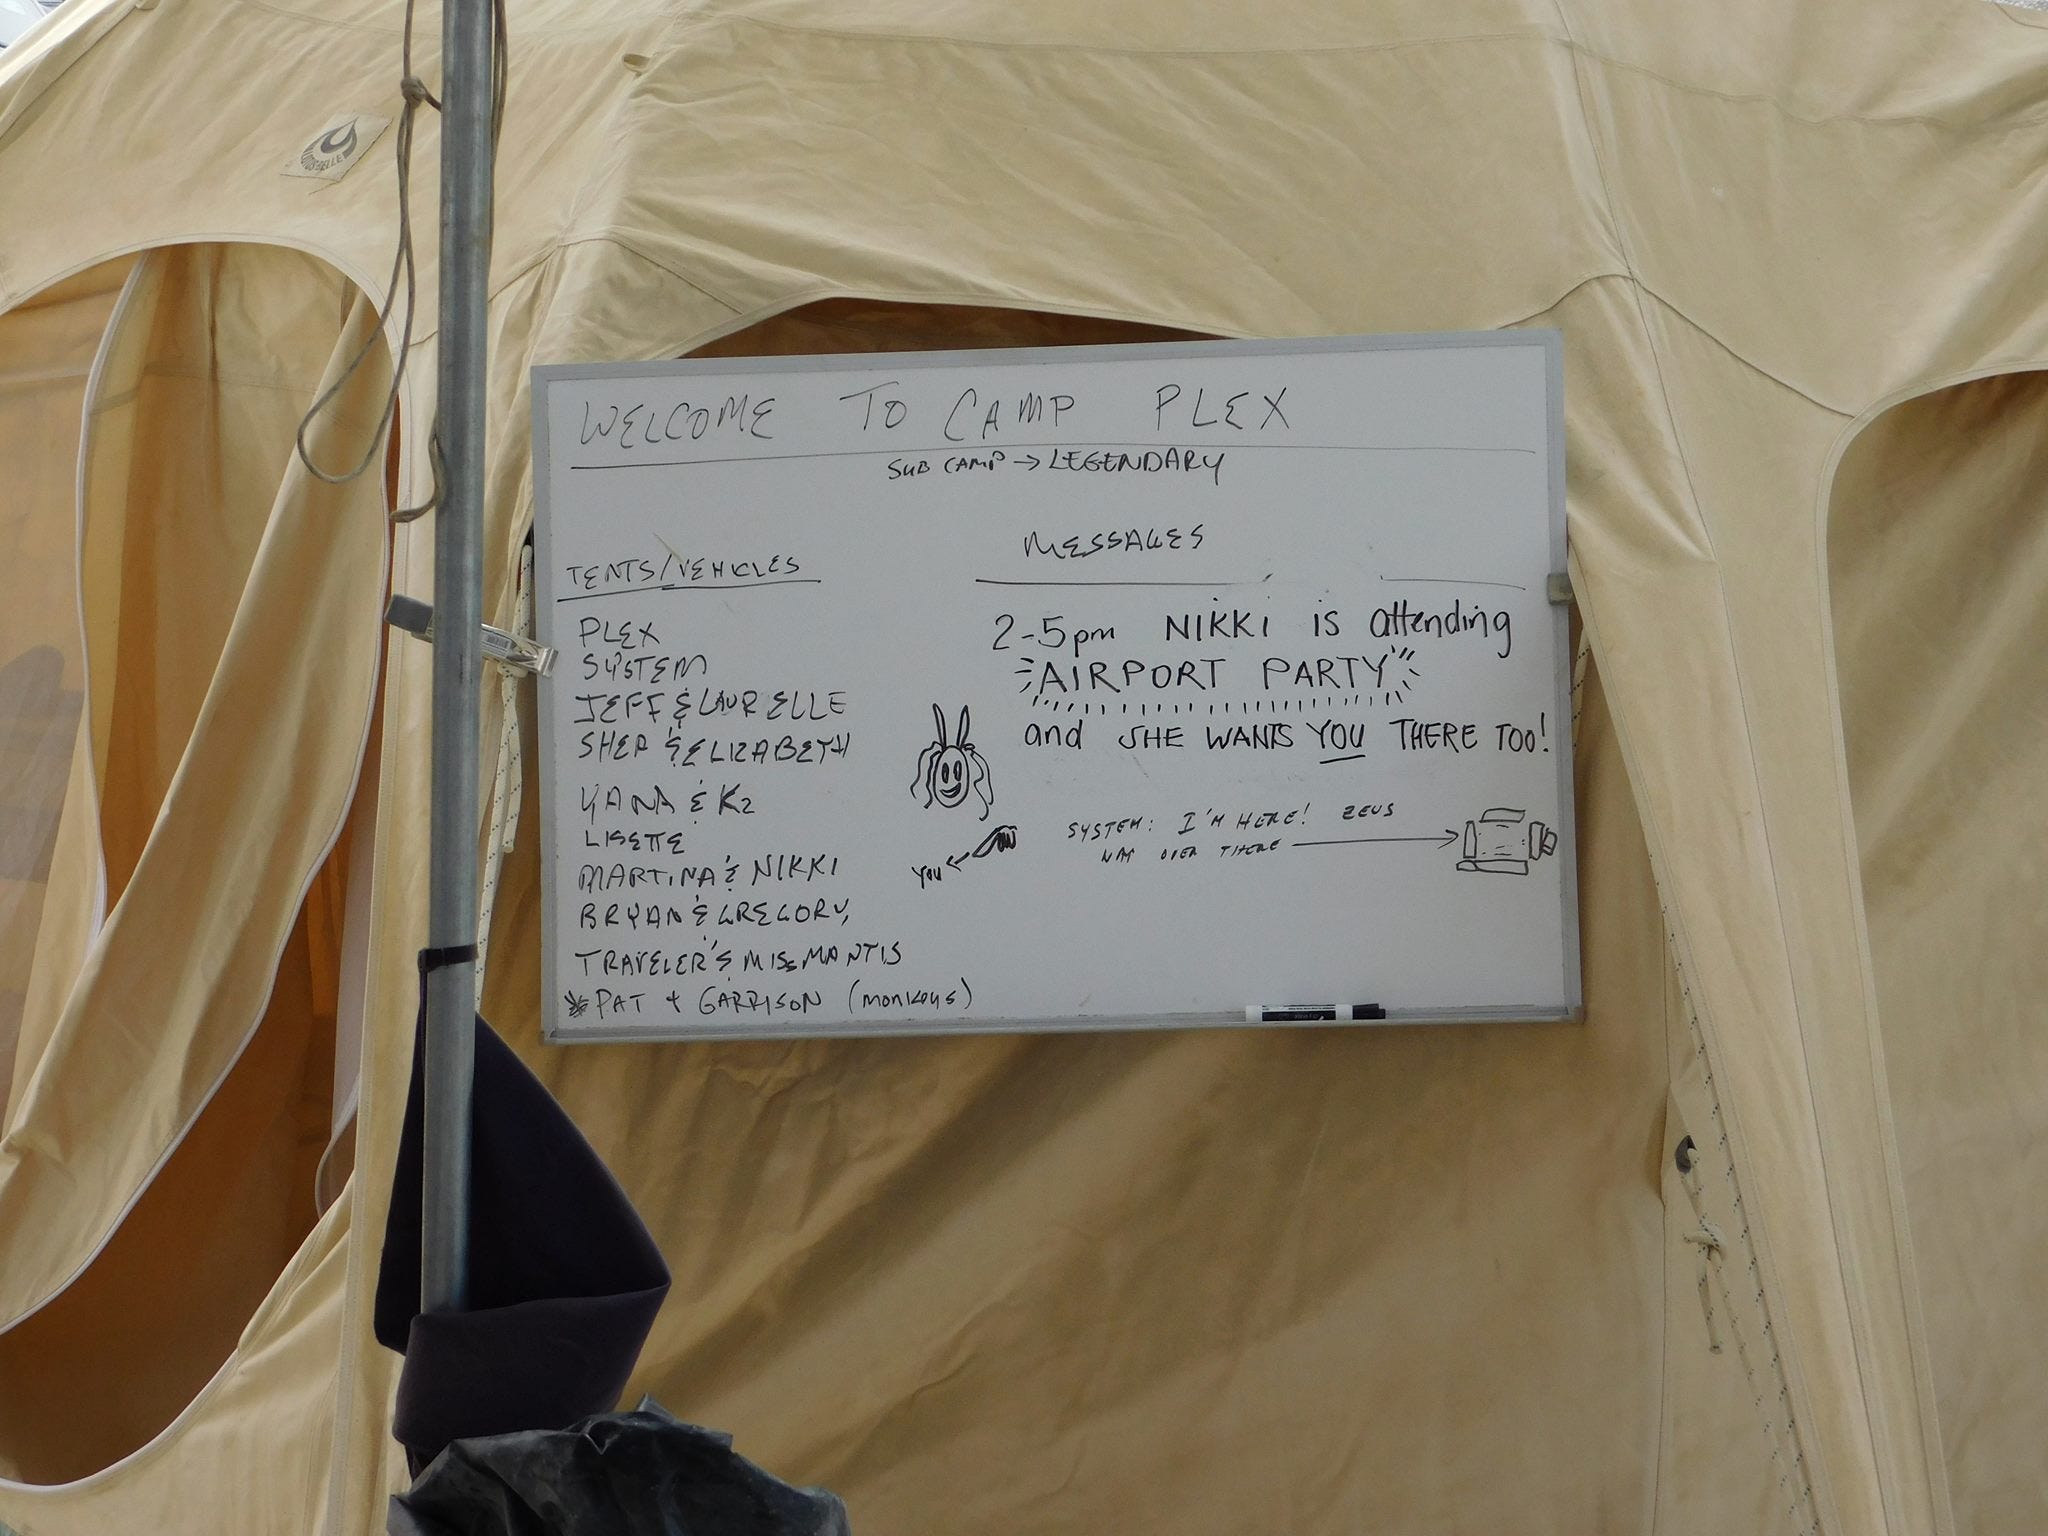 LOTUS BELLE
WELCOME TO CAMP PLEX
SUB CAMP → LEGENDARY
TENTS/VEHICLES
PLEX
SYSTEM
JEFF & LAURELLE
SHER & ELIZABETH
YANA & K2
LISETTE
MARTINA & NIKKI
BRYAN & GREGORY,
TRAVELER'S MISS MANTIS
PAT + GARRISON (monkeys)
MESSAGES
2-5pm NIKKI is attending
AIRPORT PARTY
and SHE WANTS YOU THERE TOO!
YOU ←
SYSTEM: I'M HERE! ZEUS
MAP OVER THERE →